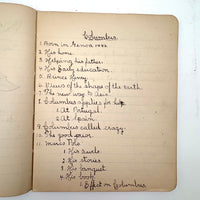 Columbus.
1. Born in Genoa
2. His home.
3. Helping his father.
4. His Early education.
5. Prince Henry.
6. Views of the shape of the earth.
7. The new way to
8. Columbus applies for help.
1. At Portugal.
2. At Spain.
9. Columbus called crazy.
10. The good prior.
11. Marco Polo
1. His uncle.
2. His stories
3. His banquet
4. His book
Effect on Columbus